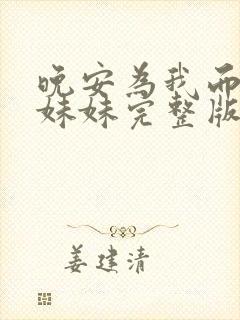 晚安为我而
妹妹完整版
姜建清